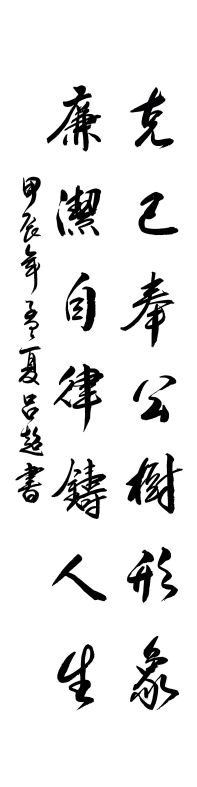 克己奉公樹形象
廉潔自律鑄人生
甲辰年孟夏吕超書